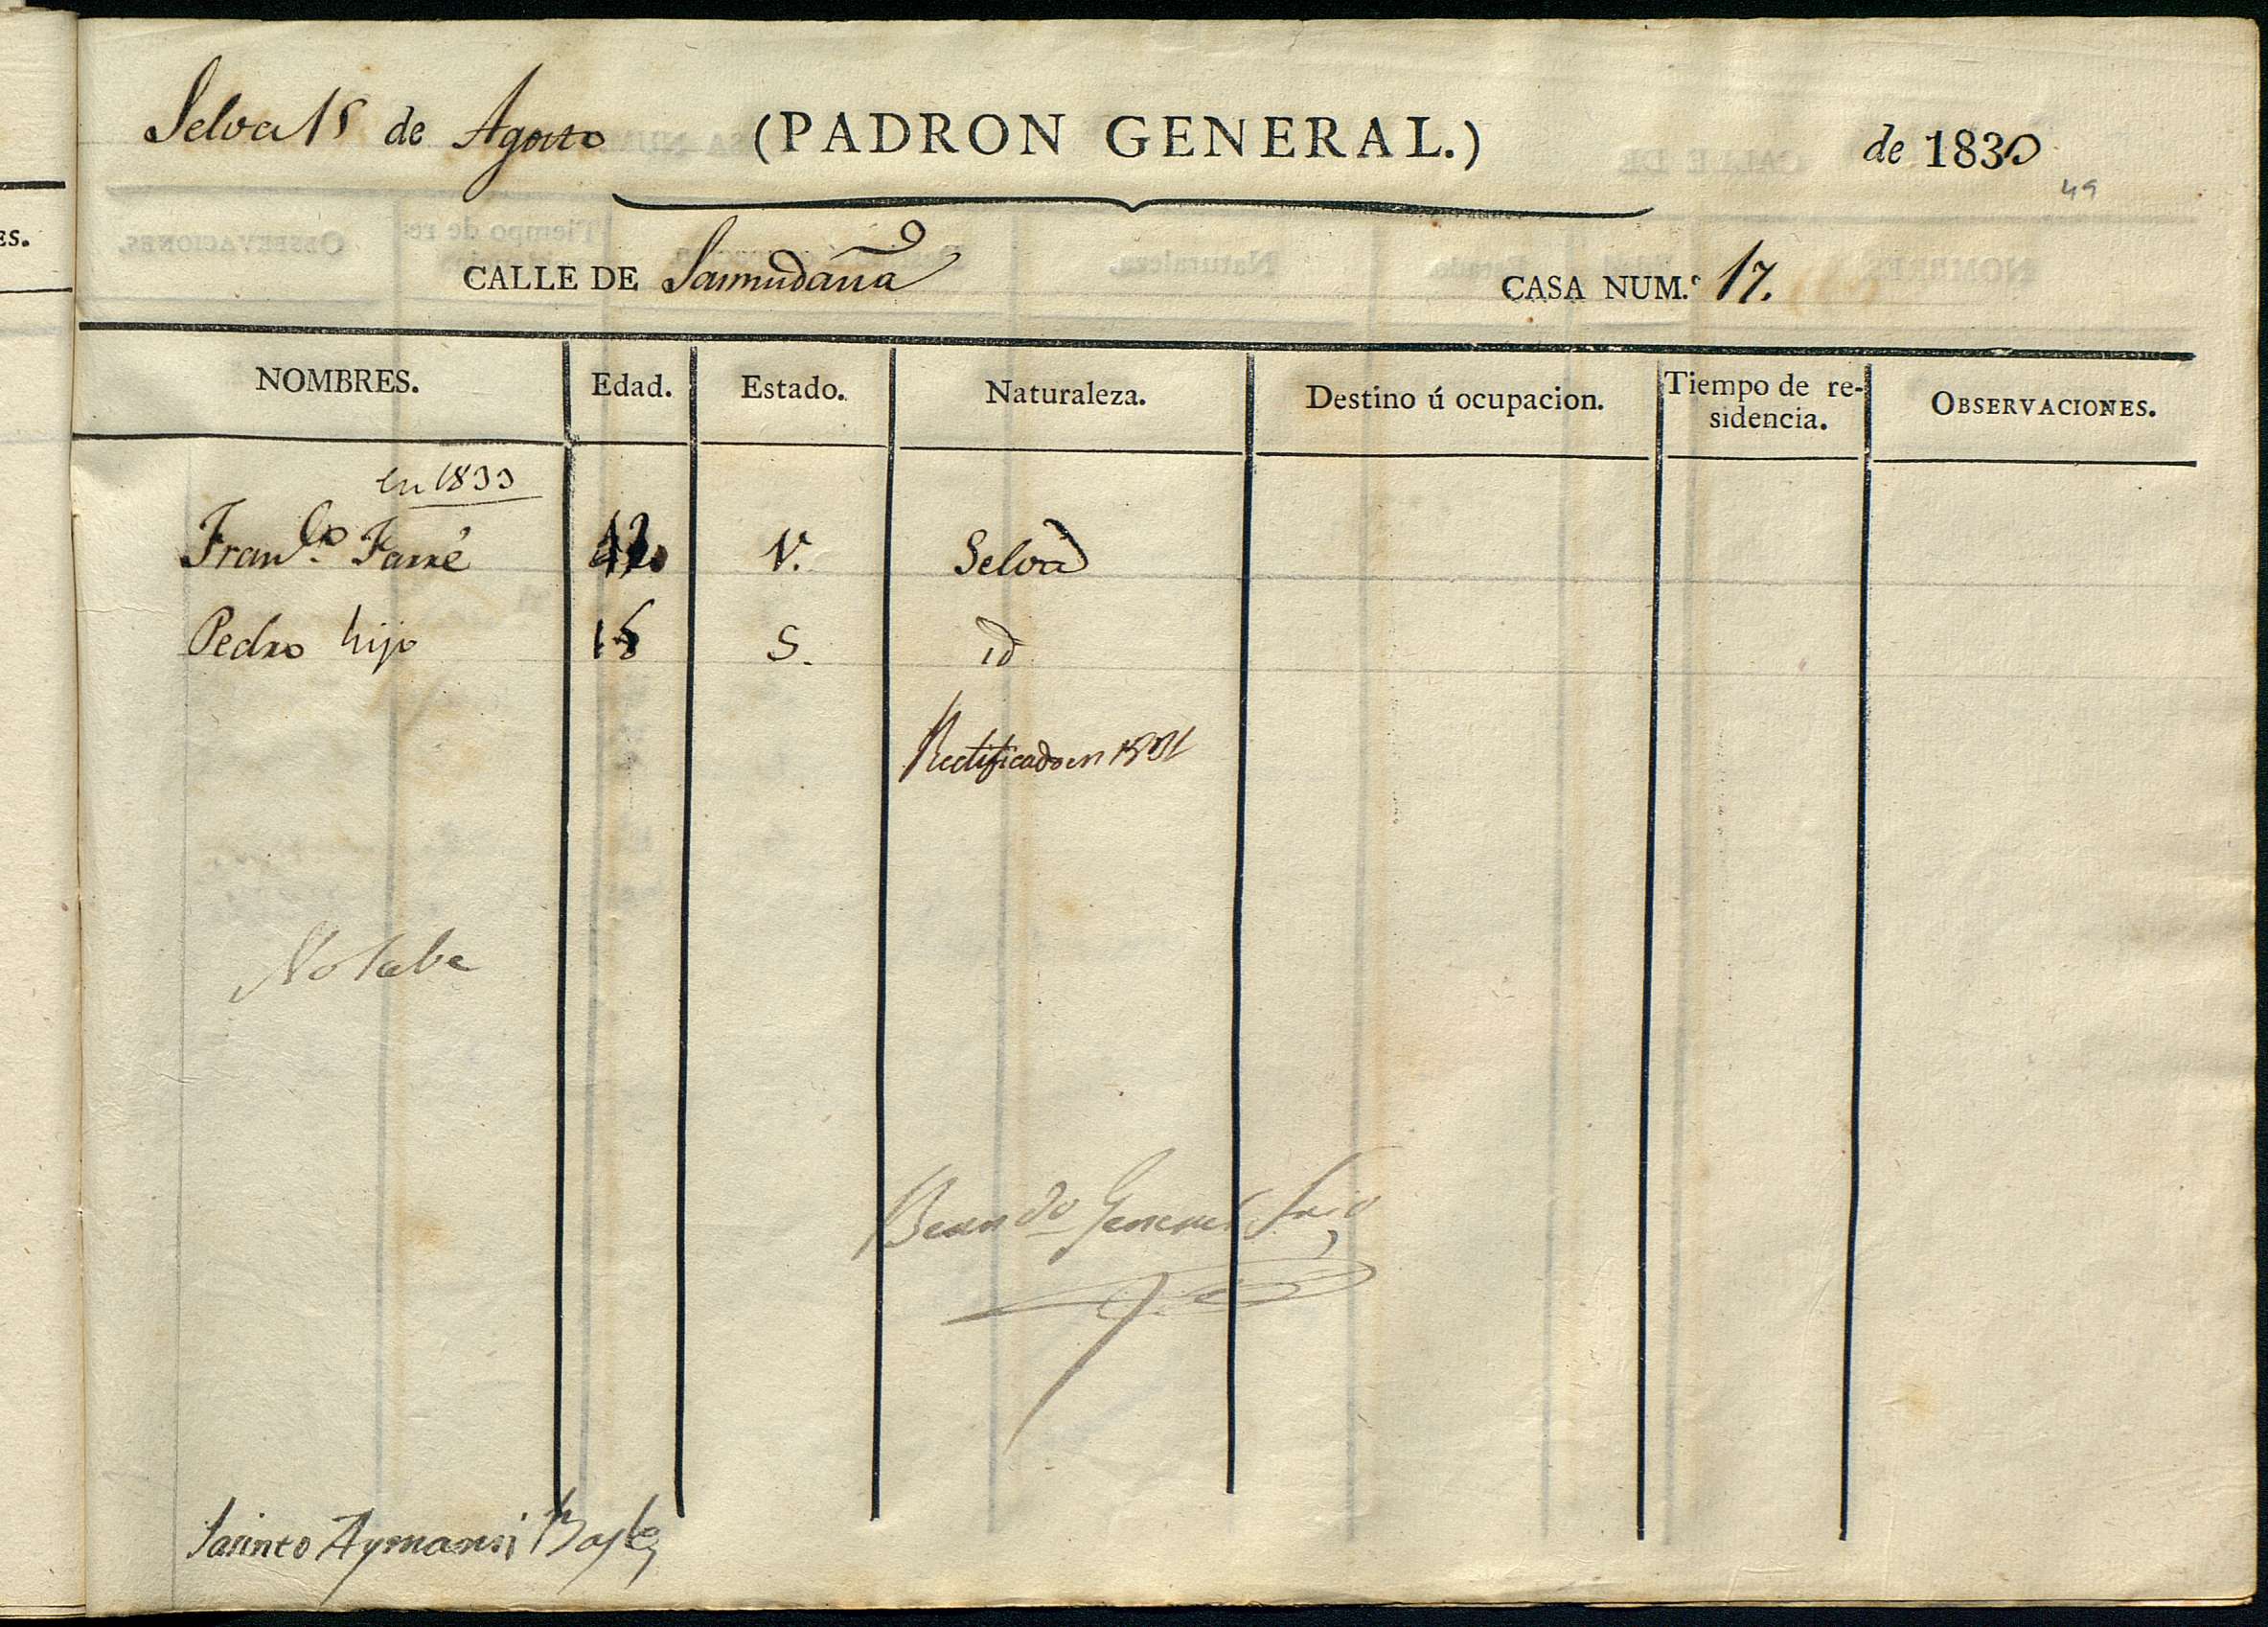 ES.
Selva 15 de Agosto (PADRON GENERAL.) de 1830
49
CALLE DE Sanmudaña CASA NUM.º 17.
NOMBRES. Edad. Estado. Naturaleza. Destino ú ocupacion. Tiempo de re-
sidencia. OBSERVACIONES.
en 1833
Fran.co Farré V. Selva
Pedro hijo S. id
Rectificado en 1831
No Sabe
Bern.do Srio
Jacinto Aymami Bayle